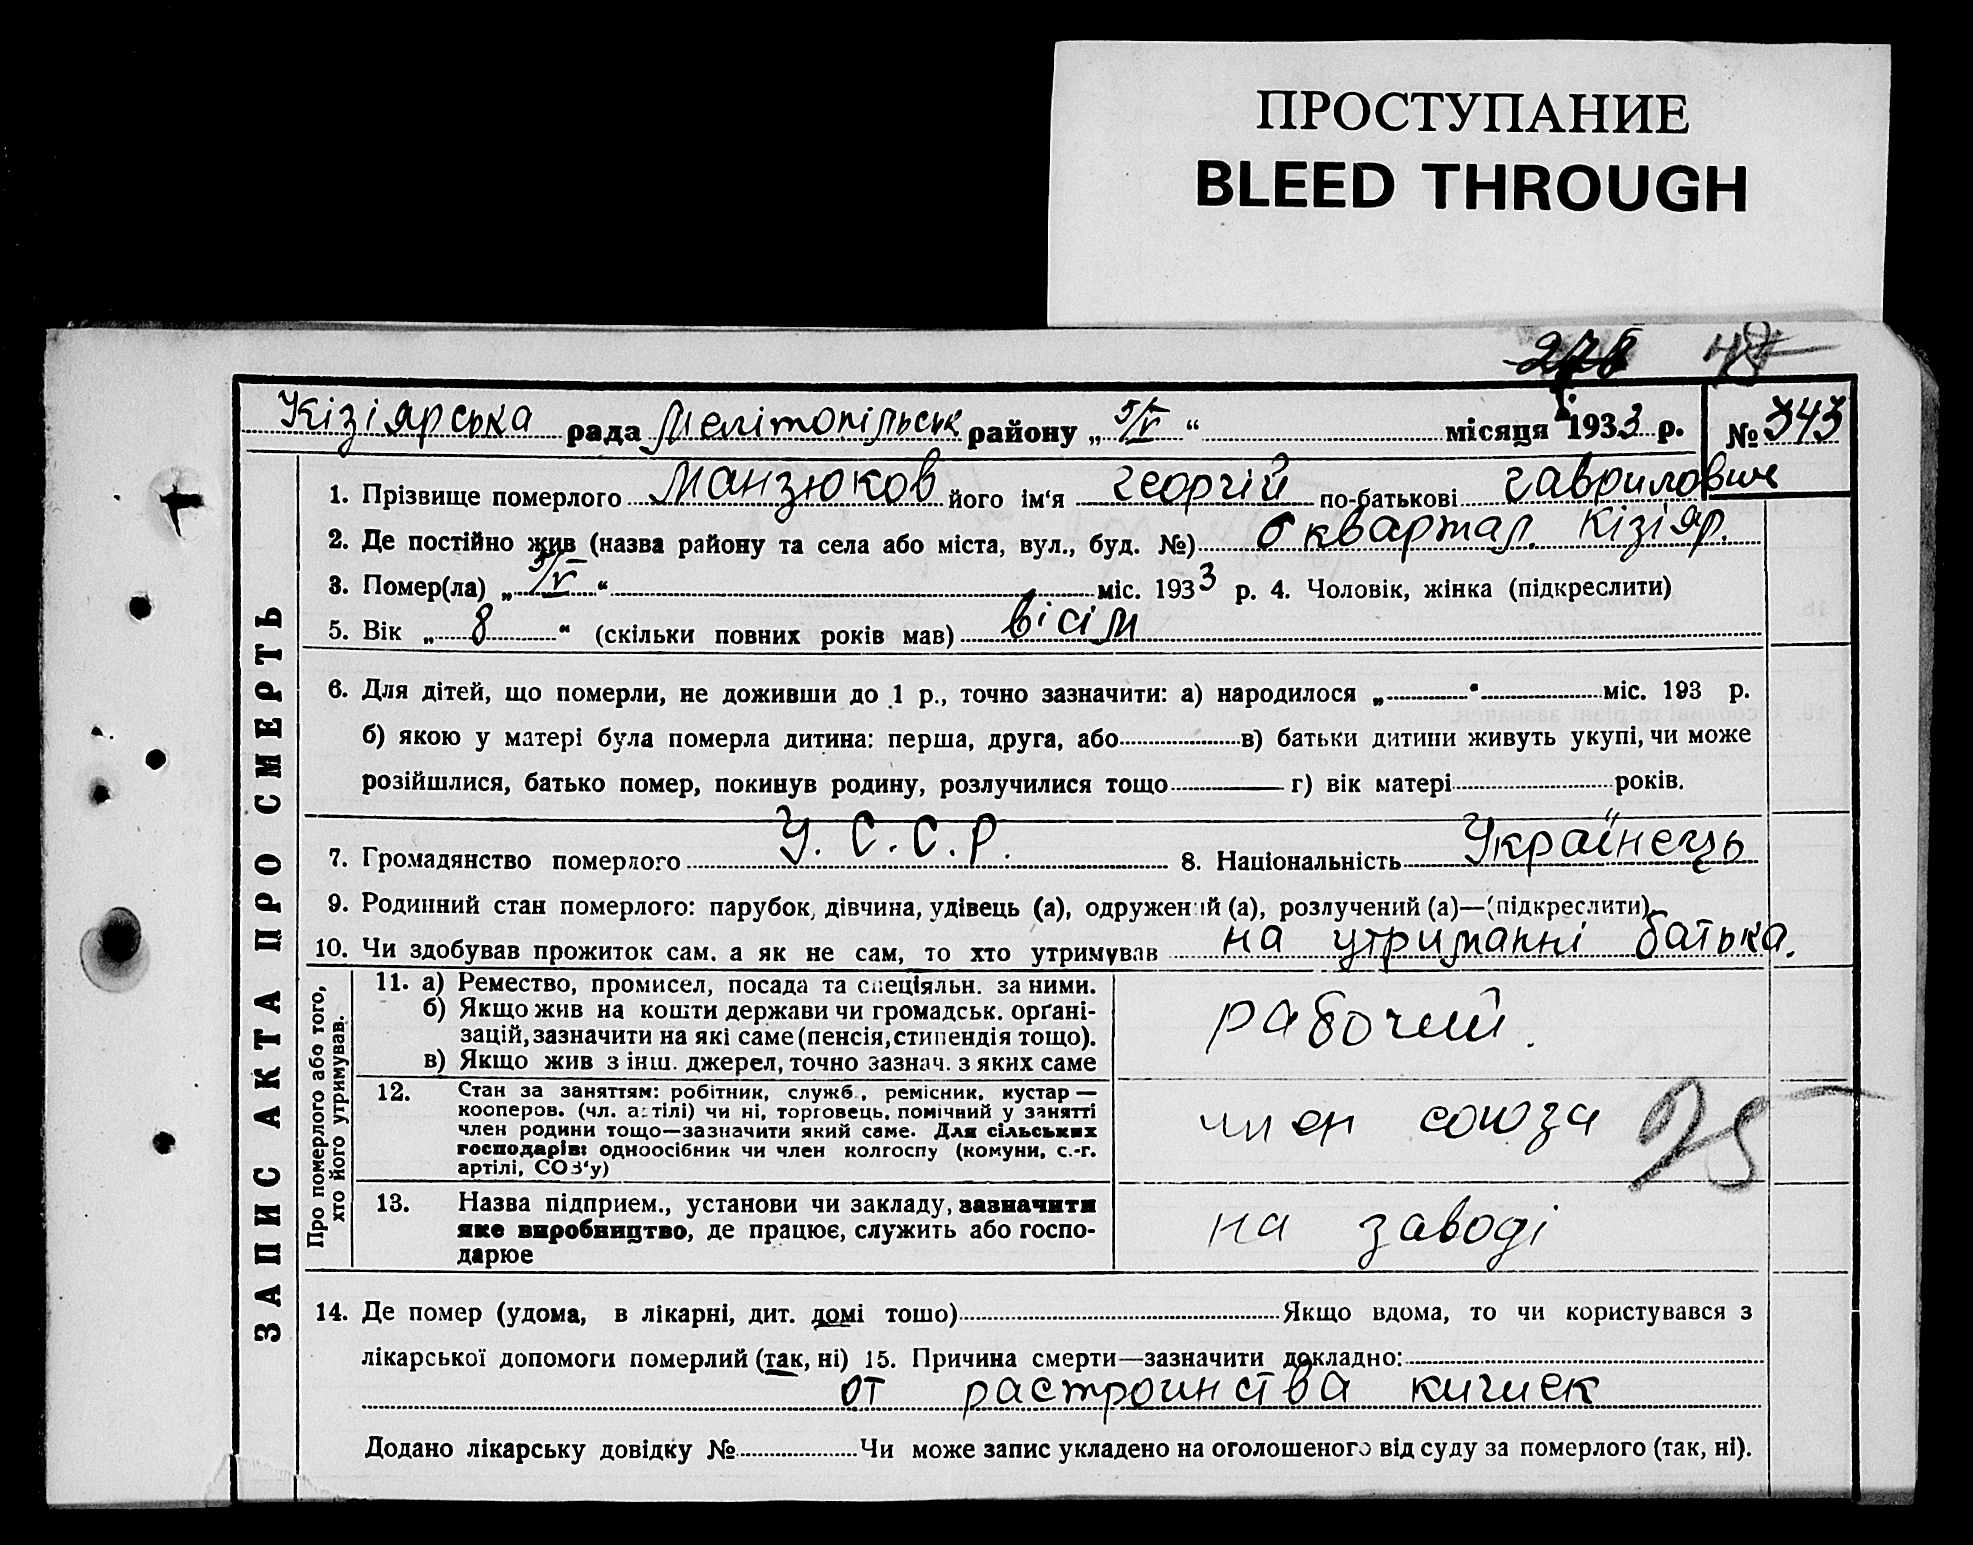 ПРОСТУПАНИЕ
BLEED THROUGH
278 48
Кізіярська рада Мелітопільськ району „5/V“ місяця 1933 р. № 343
ЗАПИС АКТА ПРО СМЕРТЬ
1. Прізвище померлого Манзюков його ім'я Георгій по-батькові Гаврилович
2. Де постійно жив (назва району та села або міста, вул., буд. №) 6 квартал. Кізіяр.
3. Помер(ла) „5/V“ міс. 1933 р. 4. Чоловік, жінка (підкреслити)
5. Вік „8“ (скільки повних років мав) вісім
6. Для дітей, що померли, не доживши до 1 р., точно зазначити: а) народилося „ “ міс. 193 р.
б) якою у матері була померла дитина: перша, друга, або в) батьки дитини живуть укупі, чи може
розійшлися, батько помер, покинув родину, розлучилися тощо г) вік матері років.
7. Громадянство померлого У.С.С.Р. 8. Національність Українець
9. Родинний стан померлого: парубок, дівчина, удівець (а), одружений (а), розлучений (а)—(підкреслити)
10. Чи здобував прожиток сам. а як не сам, то хто утримував на утриманні батька.
Про померлого або того, хто його утримував.
11. а) Ремество, промисел, посада та спеціяльн. за ними.
б) Якщо жив на кошти держави чи громадськ. орґані-
зацій, зазначити на які саме (пенсія, стипендія тощо).
в) Якщо жив з інш. джерел, точно зазнач. з яких саме
рабочий.
12. Стан за заняттям: робітник, служб., ремісник, кустар —
кооперов. (чл. артілі) чи ні, торговець, помічний у занятті
член родини тощо—зазначити який саме. Для сільських
господарів: одноосібник чи член колгоспу (комуни, с.-г.
артілі, СОЗ'у)
член союза
25
13. Назва підприєм., установи чи закладу, зазначити
яке виробництво, де працює, служить або госпо-
дарює
на заводі
14. Де помер (удома, в лікарні, дит. домі тошо) Якщо вдома, то чи користувався з
лікарської допомоги померлий (так, ні) 15. Причина смерти—зазначити докладно:
от растроинства кишек
Додано лікарську довідку № Чи може запис укладено на оголошеного від суду за померлого (так, ні).